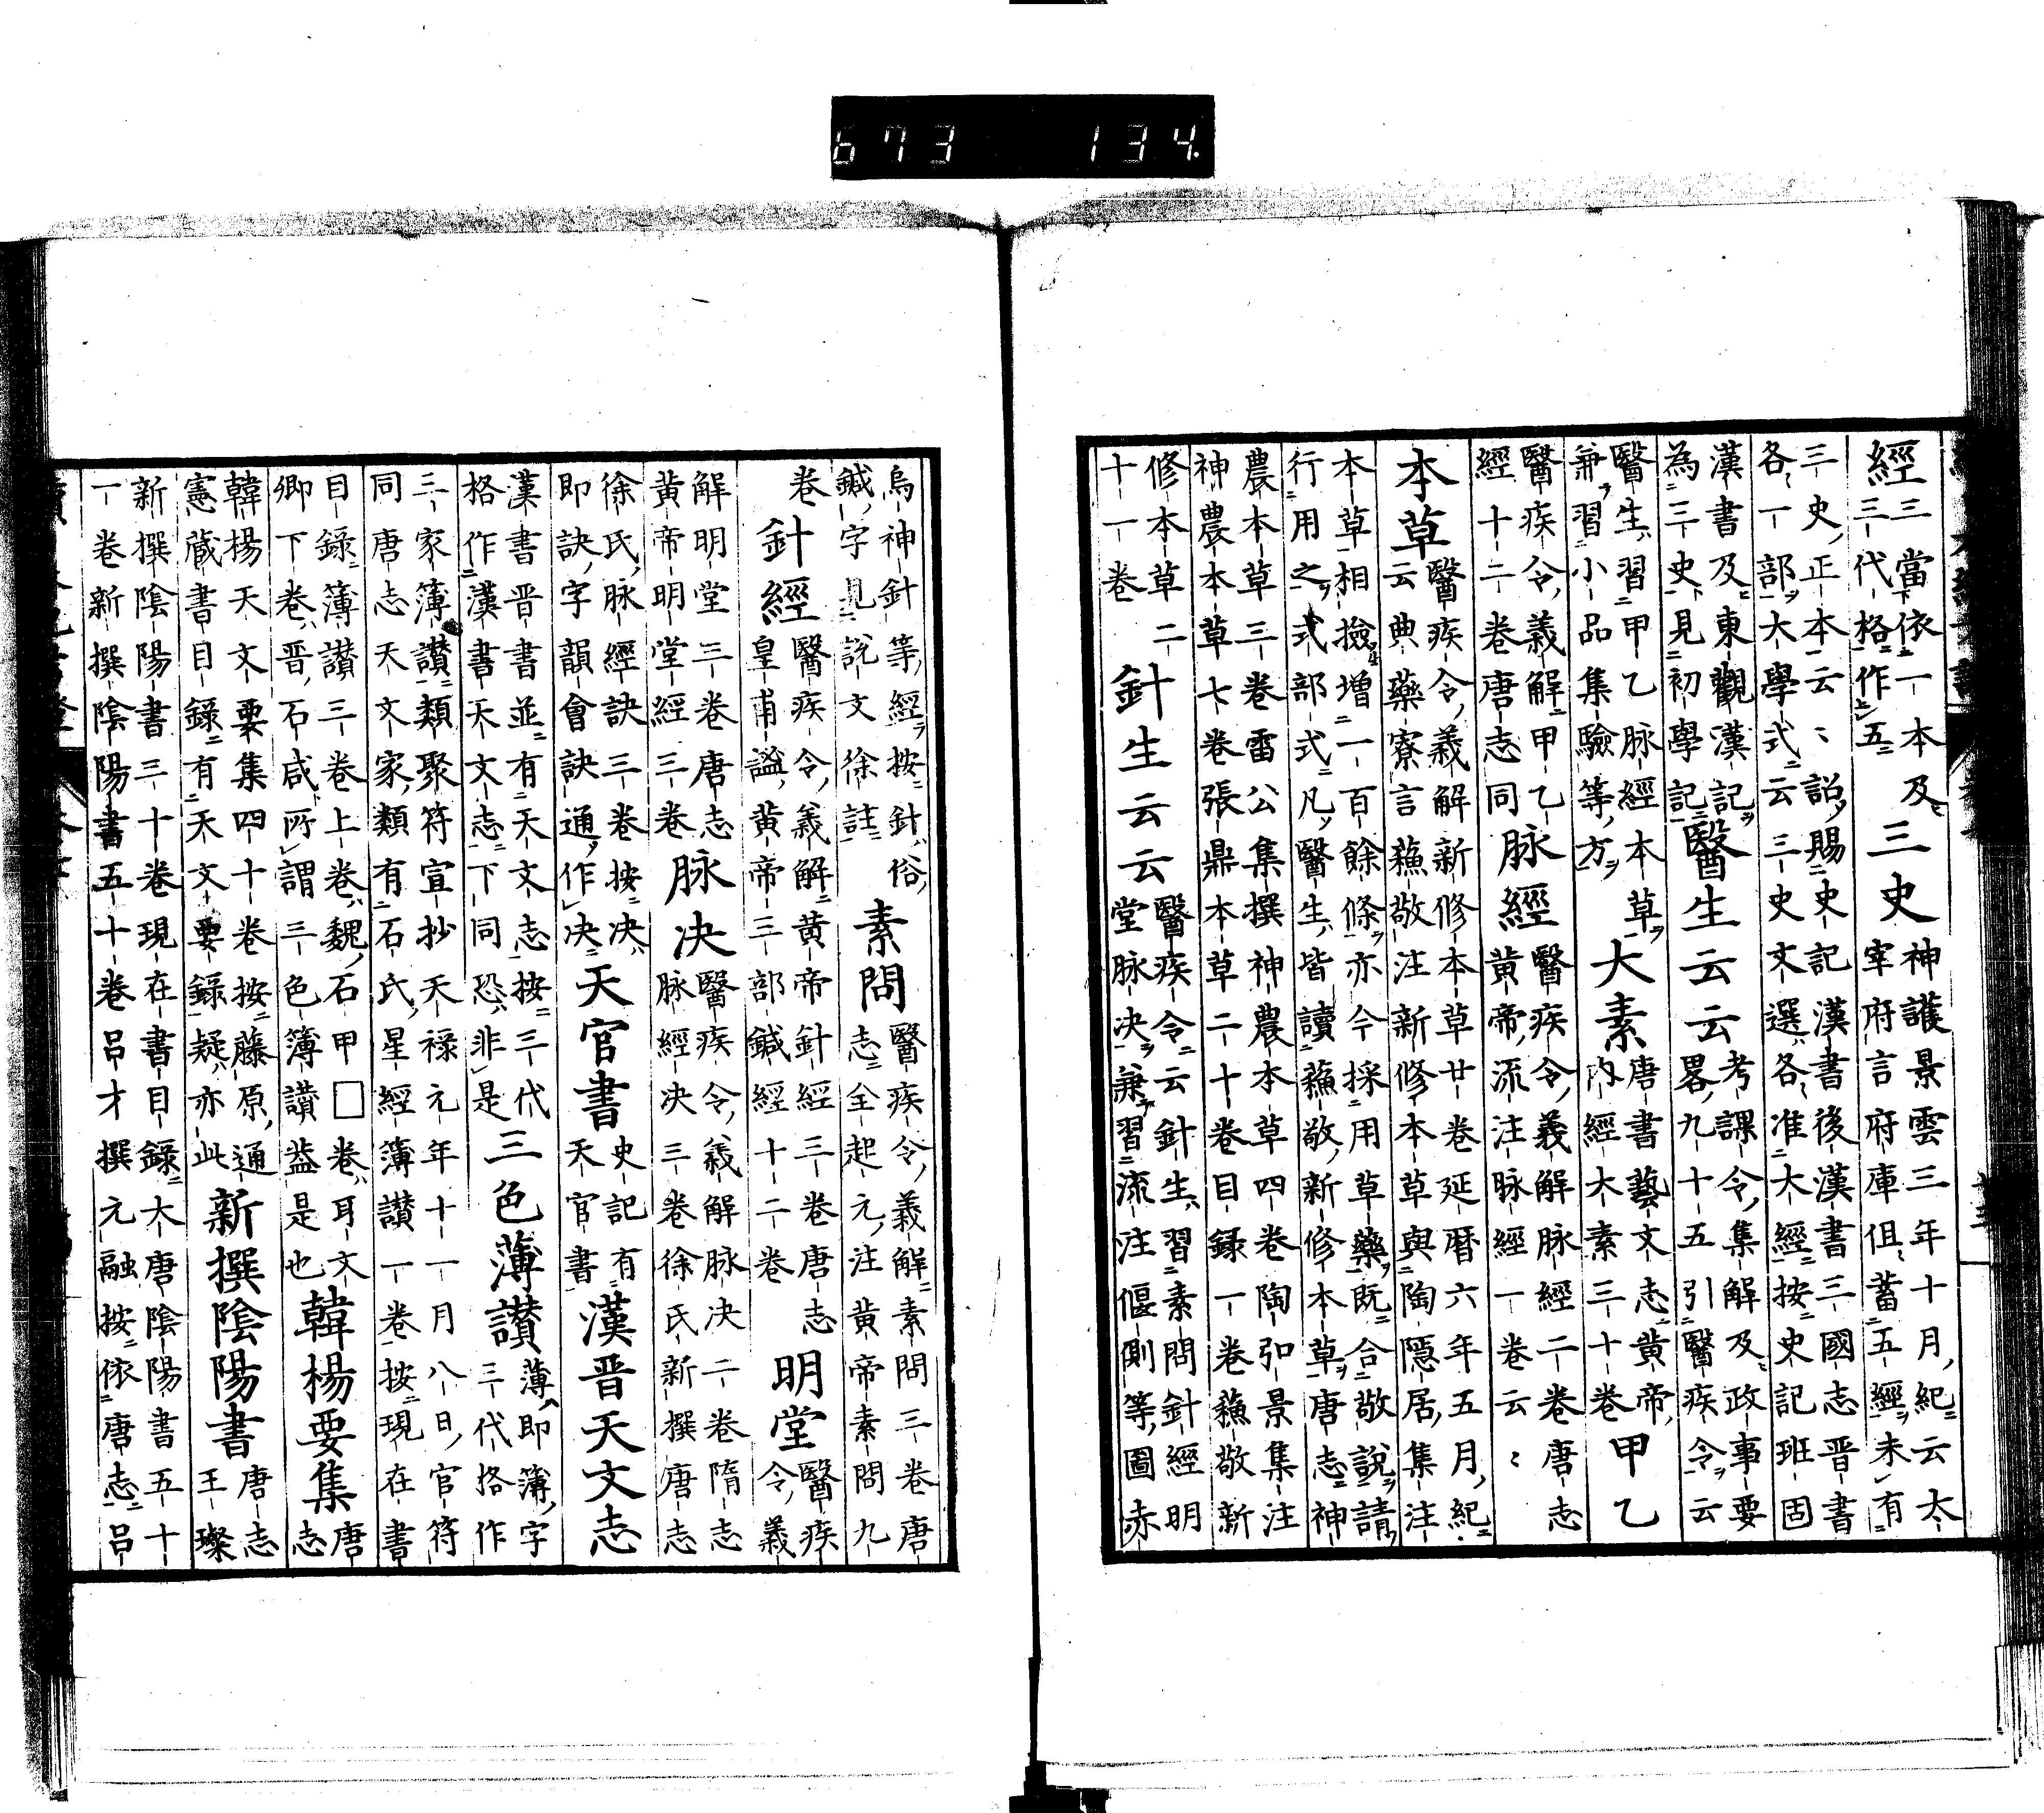 經
三當依一本及
三代格作五
三史
神護景雲三年十月紀云太
宰府言府庫但蓄五經未有
三史正本云〻詔賜史記漢書後漢書三國志晋書
各一部大學式云三史文選各准大經按史記班固
漢書及東觀漢記
為三史見初學記
醫生云云
考課令集解及政事要
畧九十五引醫疾令云
醫生習甲乙脉經本草
兼習小品集驗等方
大素
唐書藝文志黄帝
内經大素三十卷
甲乙
醫疾令義解甲乙
經十二卷唐志同
脉經
醫疾令義解脉經二卷唐志
黄帝流注脉經一卷云〻
本草
醫疾令義解新修本草廿卷延暦六年五月紀
云典藥寮言蘓敬注新修本草與陶隱居集注
本草相撿増一百餘條亦今採用草藥既合敬説請
行用之式部式凡醫生皆讀蘓敬新修本草唐志神
農本草三卷雷公集撰神農本草四卷陶弘景集注
神農本草七卷張鼎本草二十卷目録一卷蘓敬新
修本草二
十一卷
針生云云
醫疾令云針生習素問針經明
堂脉决兼習流注偃側等圖赤
烏神針等經按針俗
鍼字見説文徐註
素問
醫疾令義解素問三卷唐
志全起元注黄帝素問九
卷
針經
醫疾令義解黄帝針經三卷唐志
皇甫謐黄帝三部鍼經十二卷
明堂
醫疾
令義
解明堂三卷唐志
黄帝明堂經三卷
脉决
醫疾令義解脉决二卷隋志
脉經决三卷徐氏新撰唐志
徐氏脉經訣三卷按决
即訣字韻會訣通作决
天官書
史記有
天官書
漢晋天文志
漢書晋書並有天文志按三代
格作漢書天文志下同恐非是
三色薄讃
薄即簿字
三代格作
三家簿讃類聚符宣抄天禄元年十一月八日官符
同唐志天文家類有石氏星經簿讃一卷按現在書
目録簿讃三卷上卷魏石甲□卷耳文
卿下卷晋石咸所謂三色簿讃盖是也
韓楊要集
唐
志
韓楊天文要集四十卷按藤原通
憲蔵書目録有天文要録疑亦此
新撰陰陽書
唐志
王璨
新撰陰陽書三十卷現在書目録大唐陰陽書五十
一卷新撰陰陽書五十卷呂才撰元融按依唐志呂